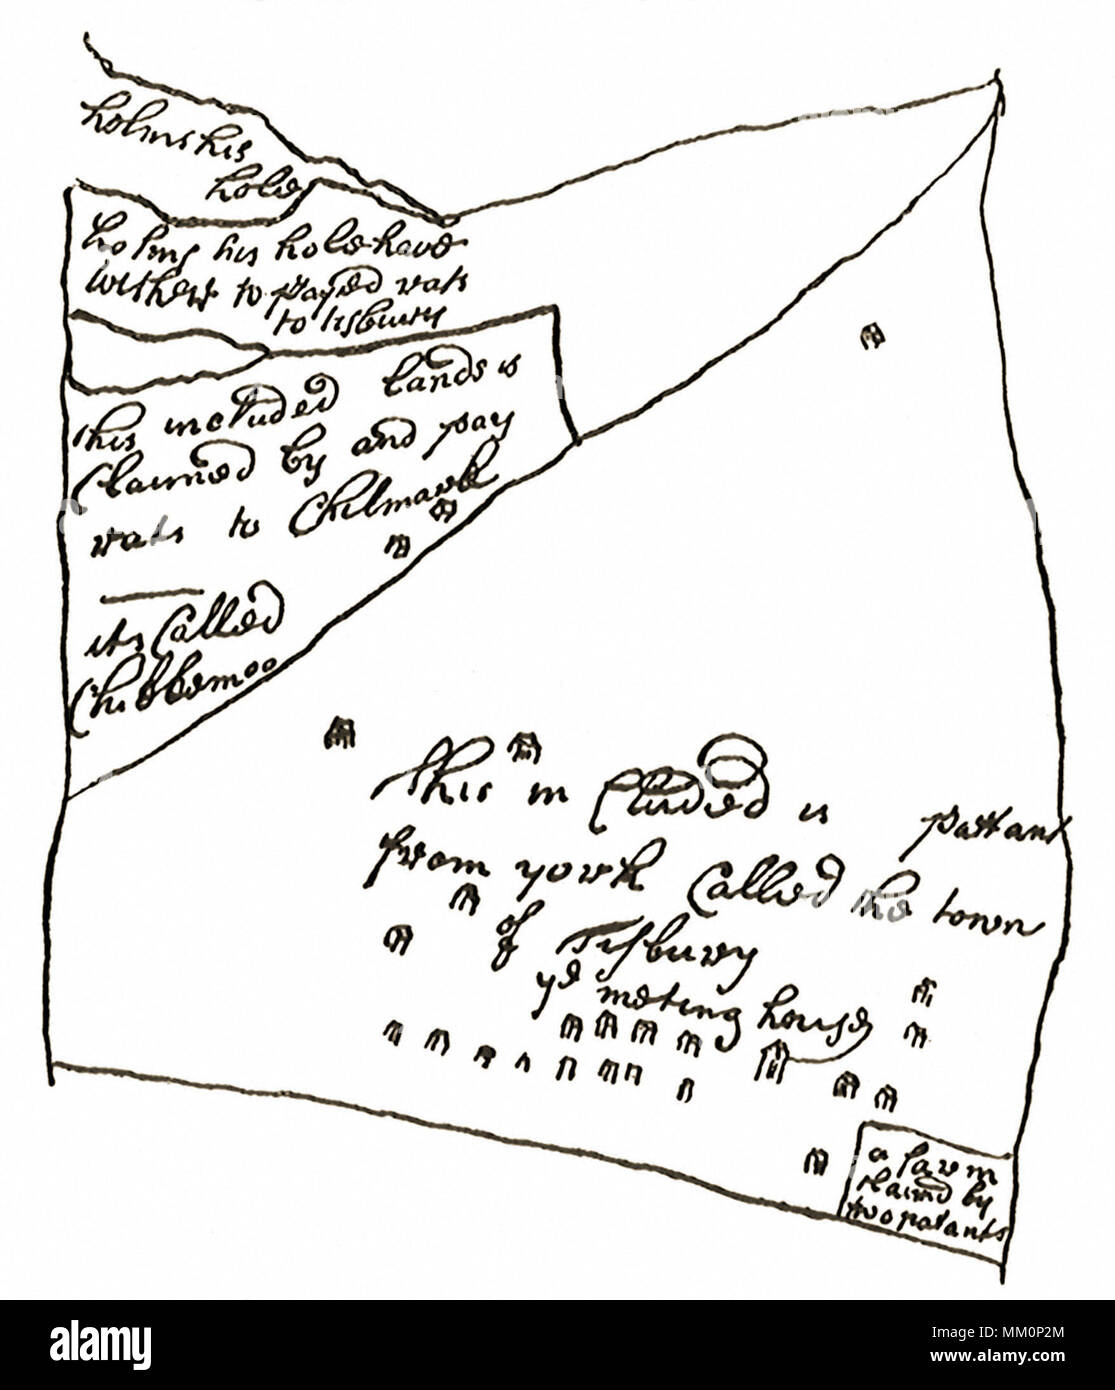 holms his
hole
holms his hole have
to payed rats
to tisbury
this included lands is
Claimed by and pay
rats to Chilmark
its Called
Chibbemoo
this in Cluded is pattant
from york Called the town
of Tisbury
ye meting house
a farm
claimd by
two patants
alamy
Image ID: MM0P2M
www.alamy.com